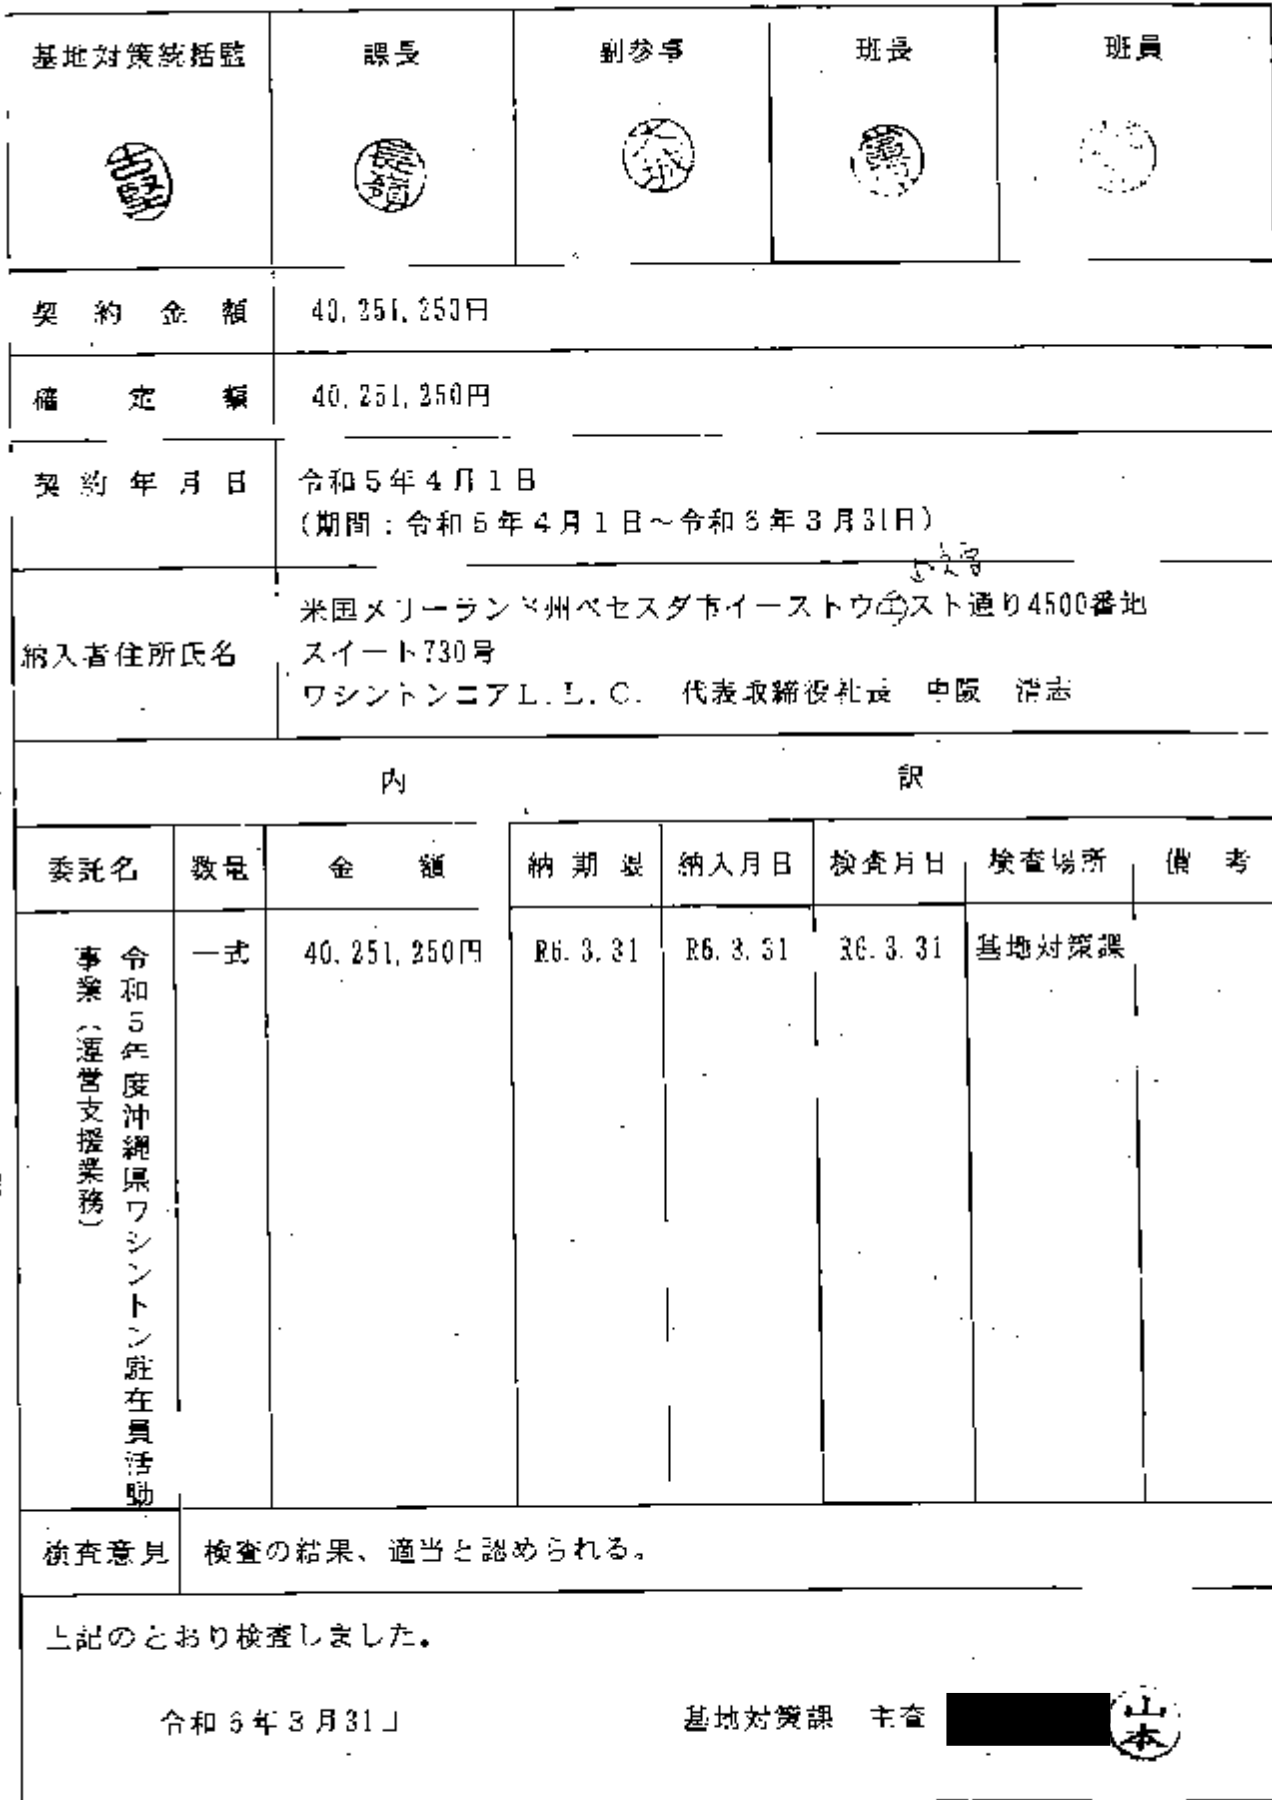 基地対策統括監 課長 副参事 班長 班員
古堅 長嶺
契約金額 40,251,250円
確定額 40,251,250円
契約年月日 令和5年4月1日
(期間：令和5年4月1日～令和6年3月31日)
納入者住所氏名 米国メリーランド州ベセスダ市イーストウエスト通り4500番地
スイート730号
ワシントンコアL.L.C. 代表取締役社長 中阪 清志
内訳
委託名 数量 金額 納期限 納入月日 検査月日 検査場所 備考
令和5年度沖縄県ワシントン駐在員活動
事業（運営支援業務）
一式 40,251,250円 R6.3.31 R6.3.31 R6.3.31 基地対策課
検査意見 検査の結果、適当と認められる。
上記のとおり検査しました。
令和6年3月31日
基地対策課 主査 山本